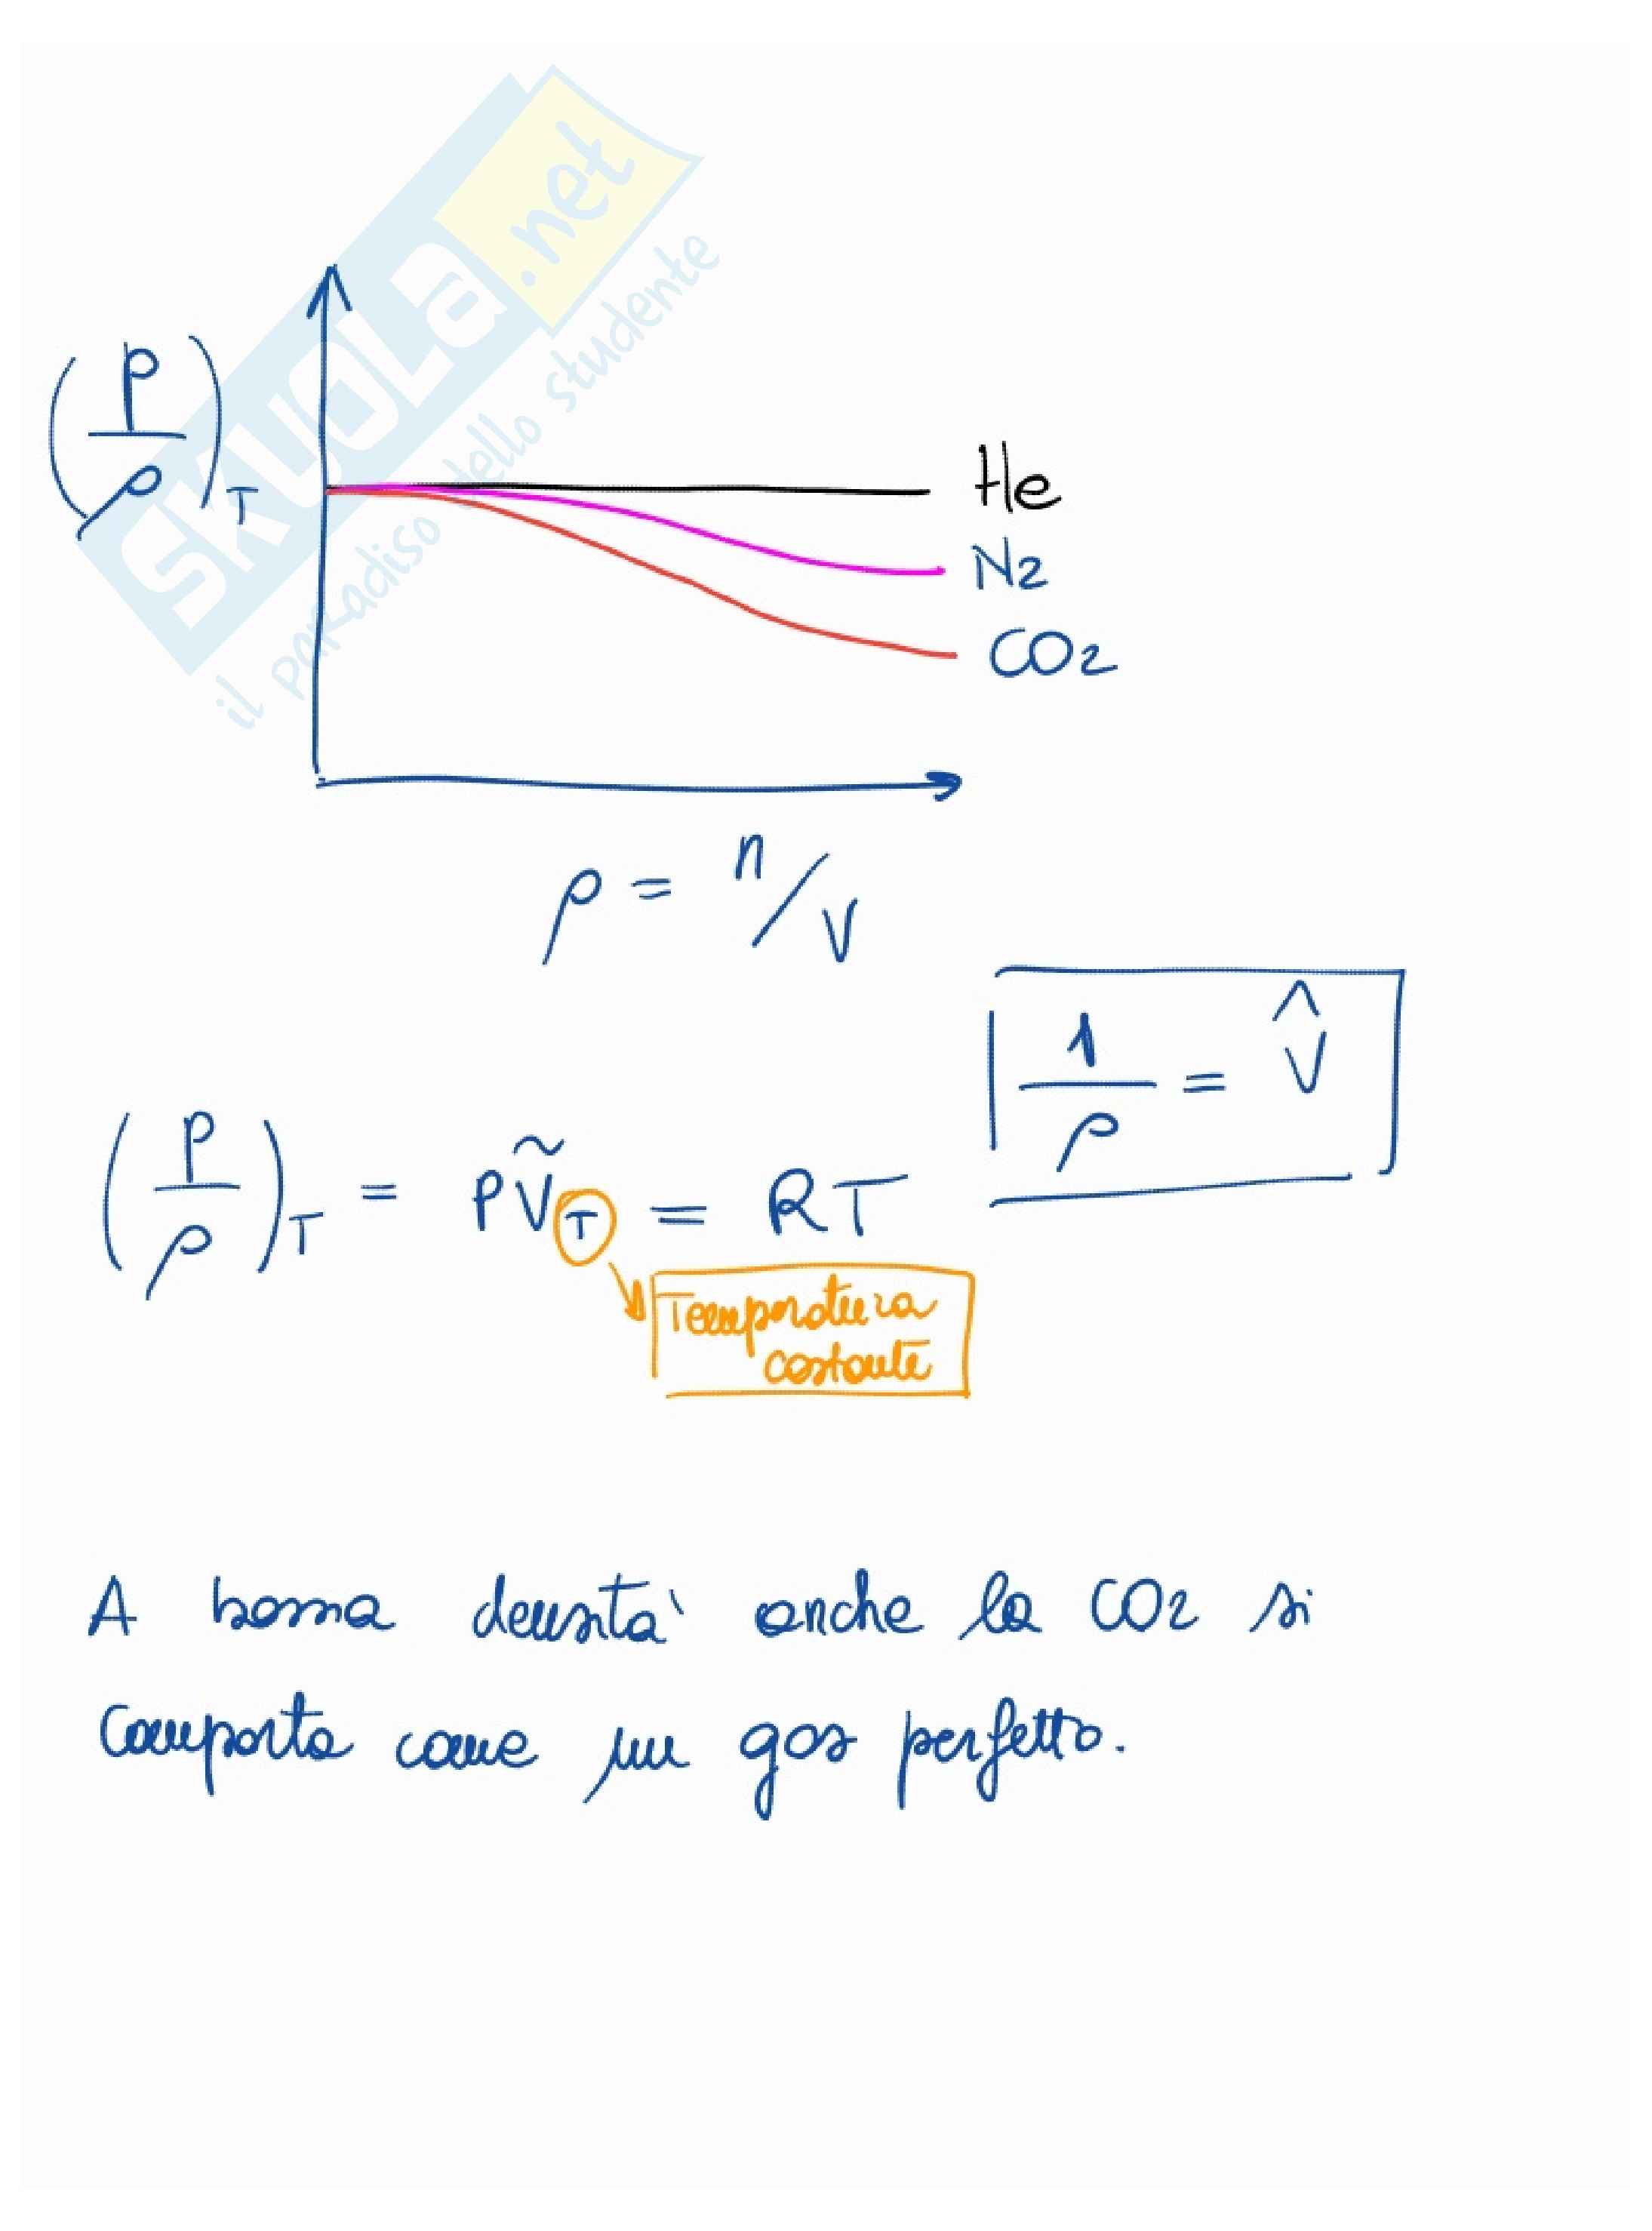 SKUOLA.net
il paradiso dello studente
(P/ρ)T
He
N2
CO2
ρ = n/V
1/ρ = V̂
(P/ρ)T = PṼT = RT
Temperatura
costante
A bassa densita' anche la CO2 si
comporta come un gas perfetto.